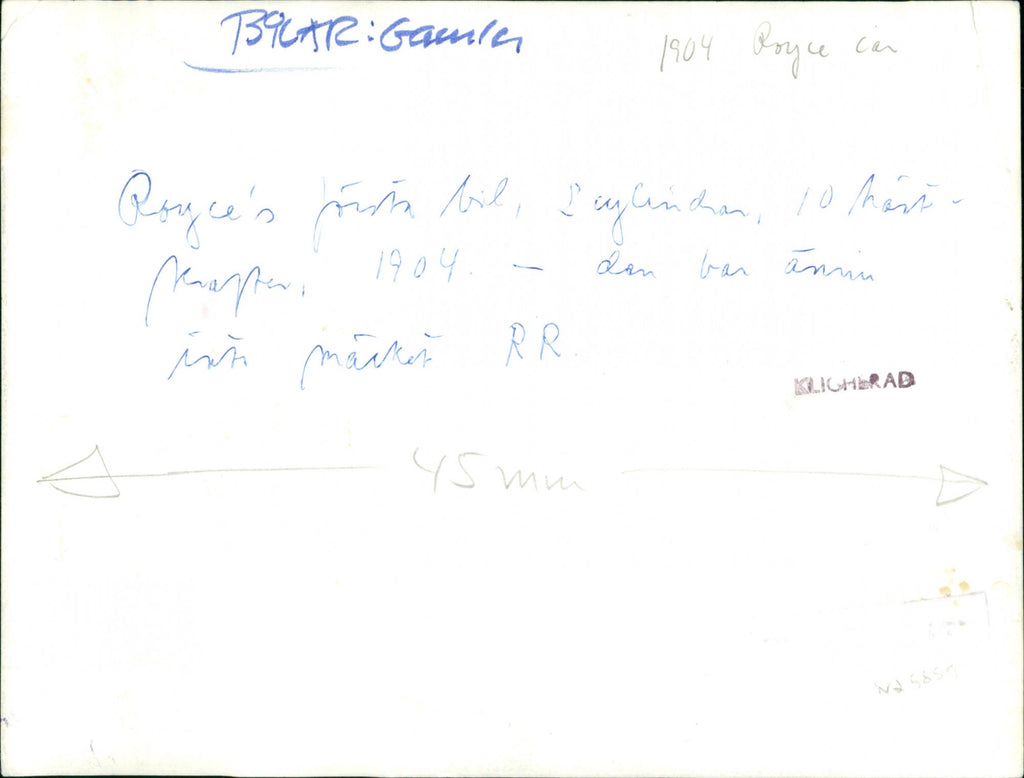 BILAR: Gamla
1904 Royce car
Royce's första bil, 2 cylindrar, 10 häst-
krafter, 1904. – den bar ännu
inte märket RR.
KLICHERAD
45 mm